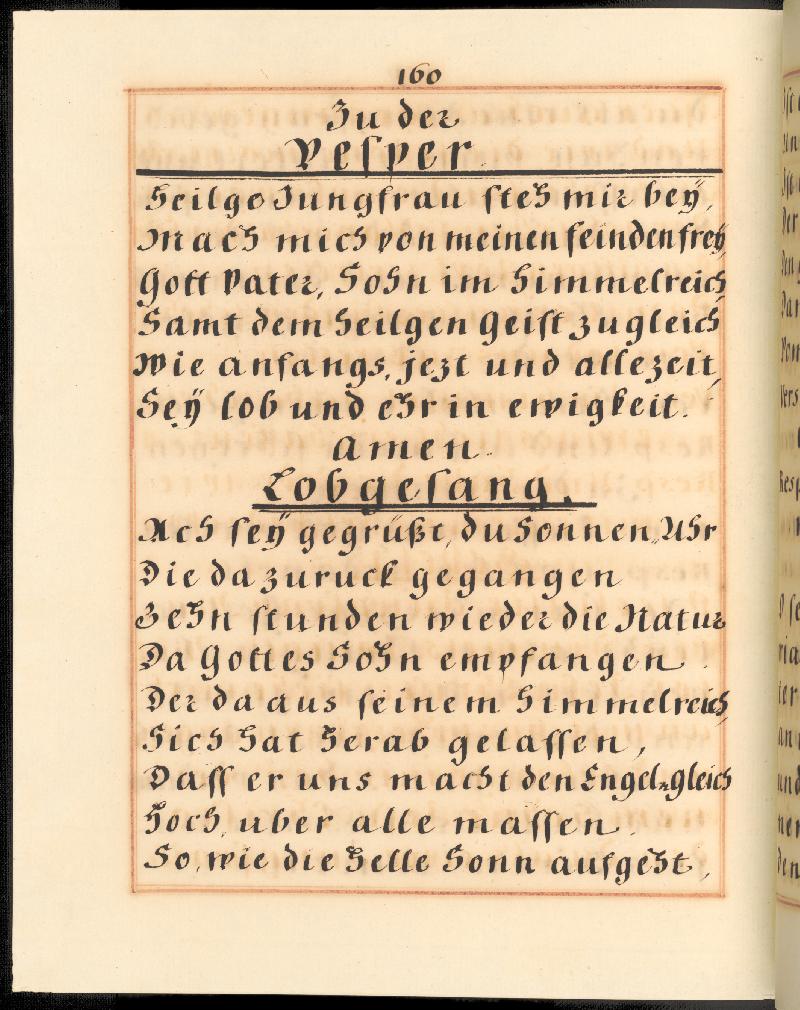 160
Zu der
Vesper.
Heilge Jungfrau steh mir beÿ,
Mach mich von meinen feinden freÿ,
Gott Vater, Sohn im Himmelreich,
Samt dem heilgen Geist zugleich
Wie anfangs, jezt und allezeit,
Seÿ lob und ehr in ewigkeit.
Amen.
Lobgesang.
Ach seÿ gegrüßt, du Sonnen„Uhr
Die da zuruck gegangen
Zehn stunden wieder die Natur
Da Gottes Sohn empfangen.
Der da aus seinem Himmelreich,
Sich hat herab gelassen,
Dass er uns macht den Engel„gleich
Hoch, uber alle massen.
So, wie die helle Sonn aufgeht,